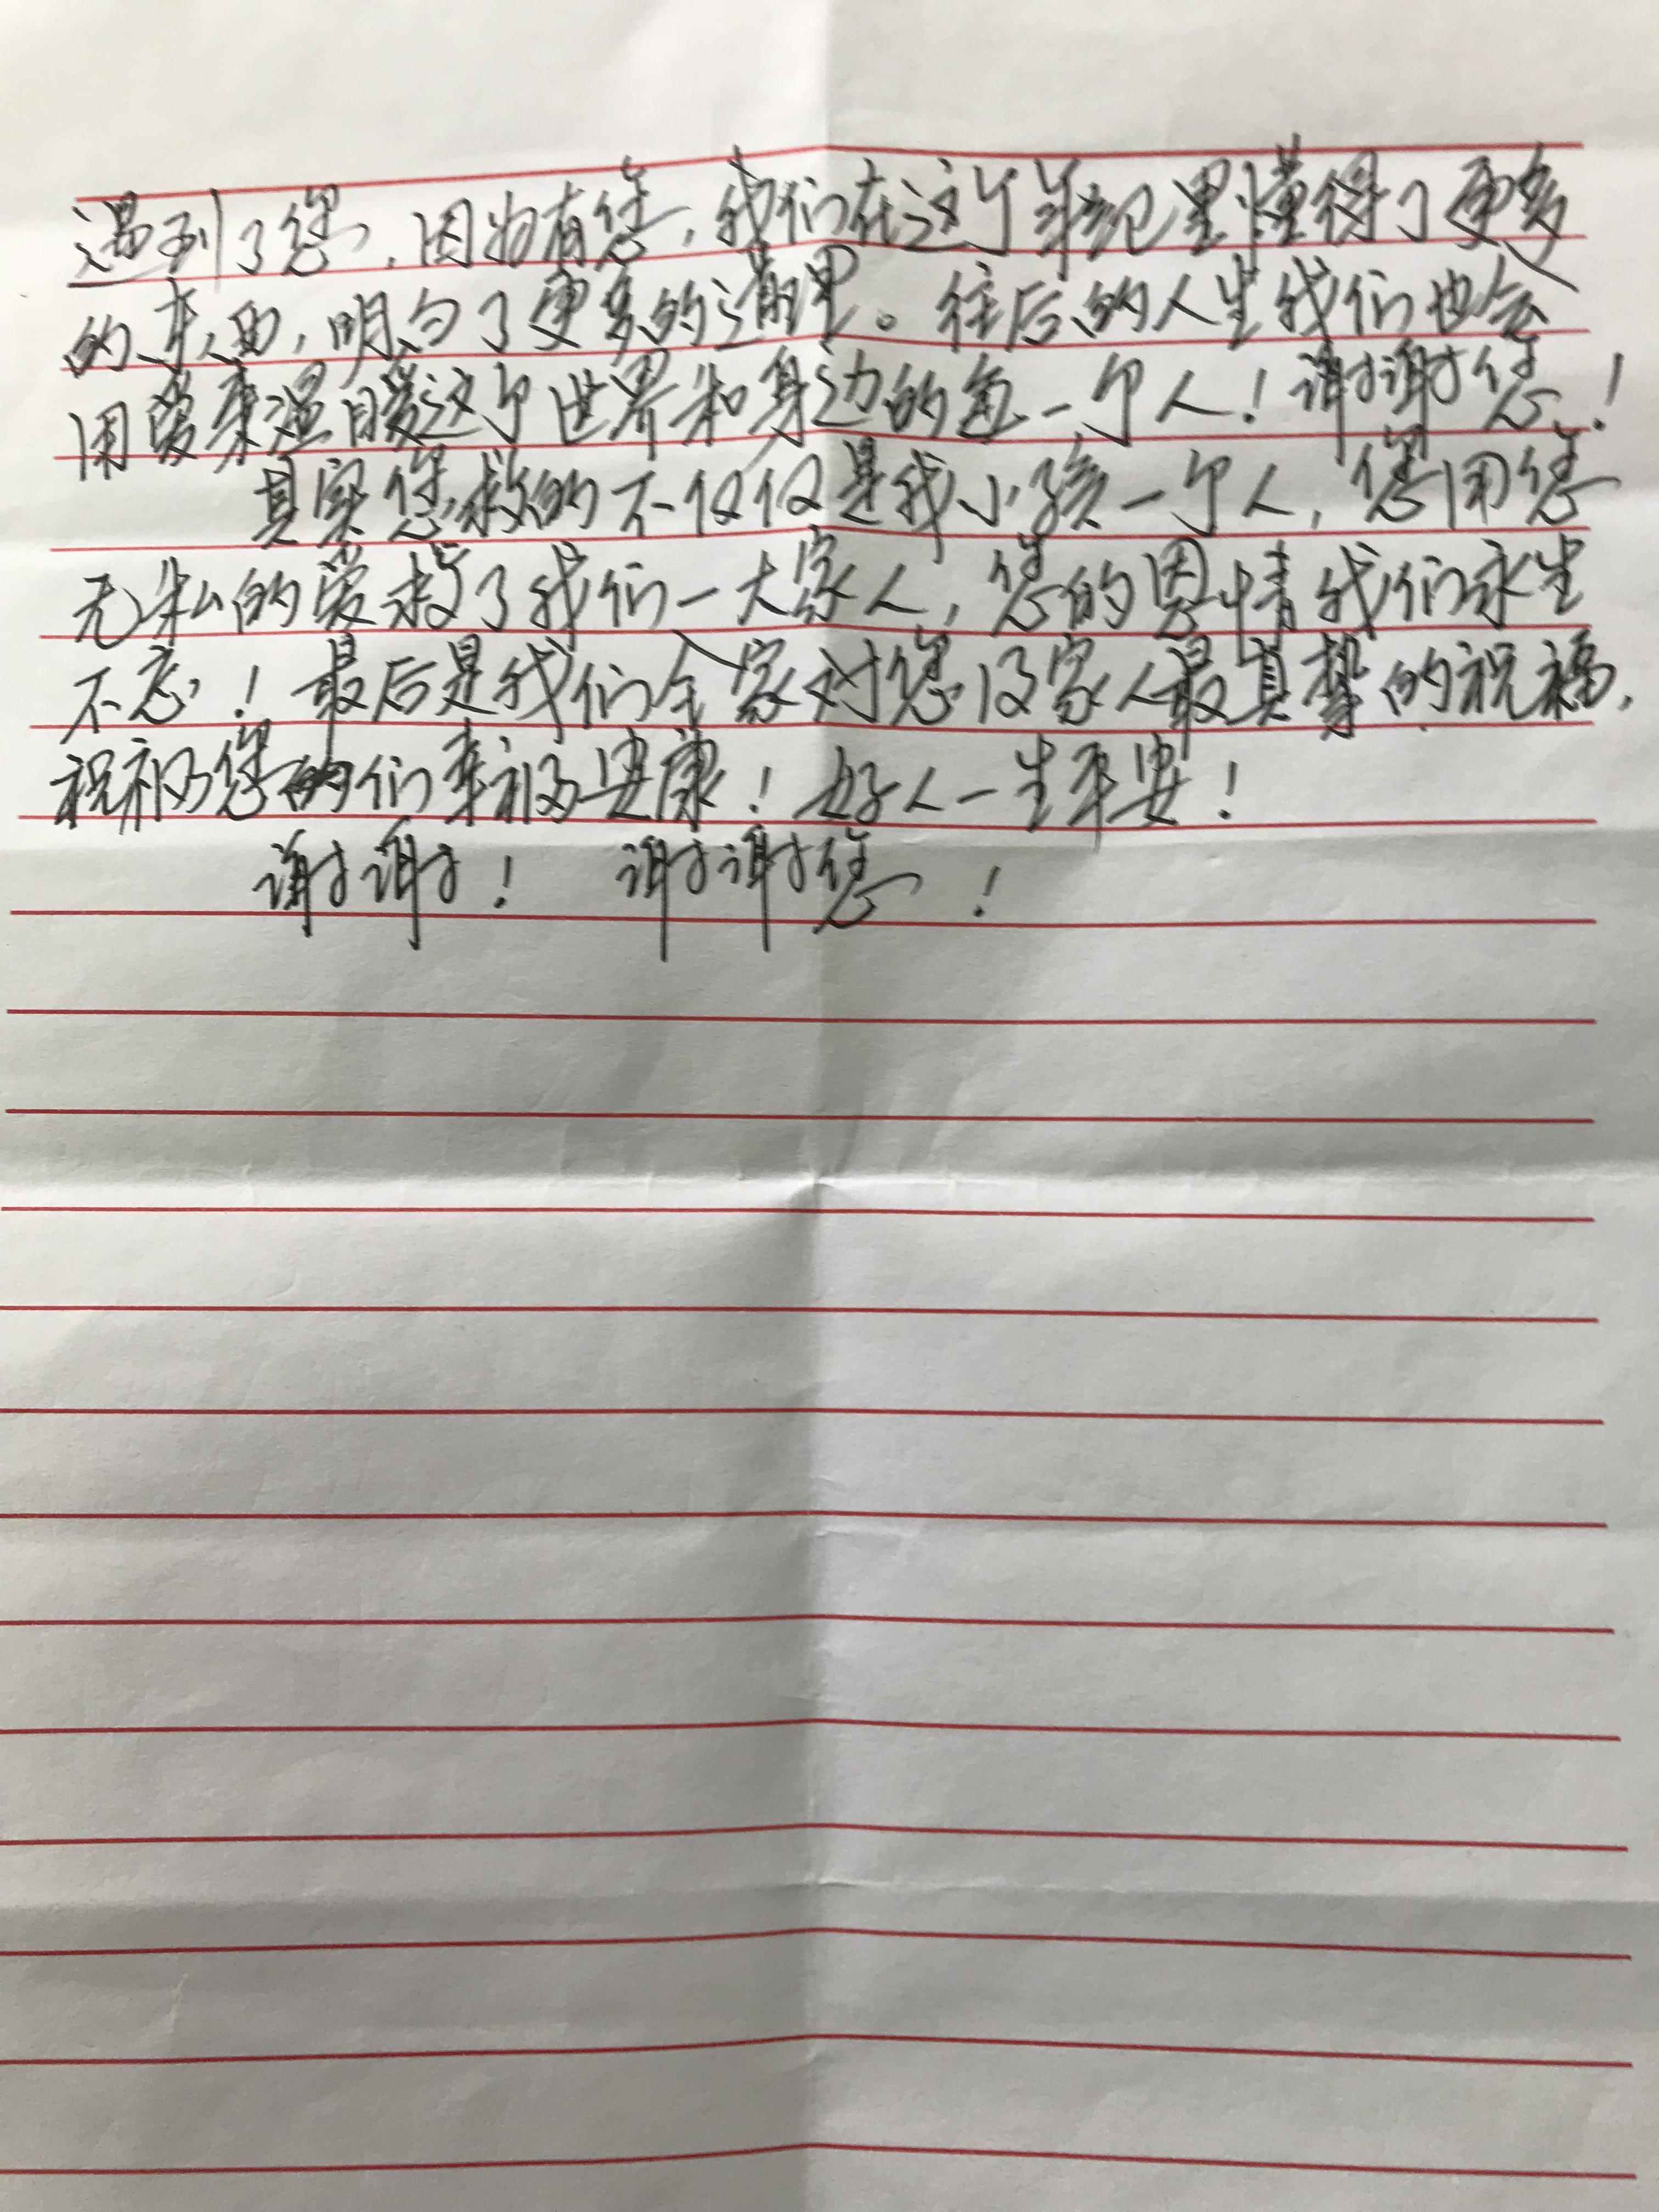 遇到了您，因为有您，我们在这个年纪里懂得了更多
的东西，明白了更多的道理。往后的人生我们也会
用爱来温暖这个世界和身边的每一个人！谢谢您！
其实您救的不仅仅是我小孩一个人，您用您
无私的爱救了我们一大家人，您的恩情我们永生
不忘！最后是我们全家对您及家人最真挚的祝福，
祝福您们幸福安康！好人一生平安！
谢谢！ 谢谢您！